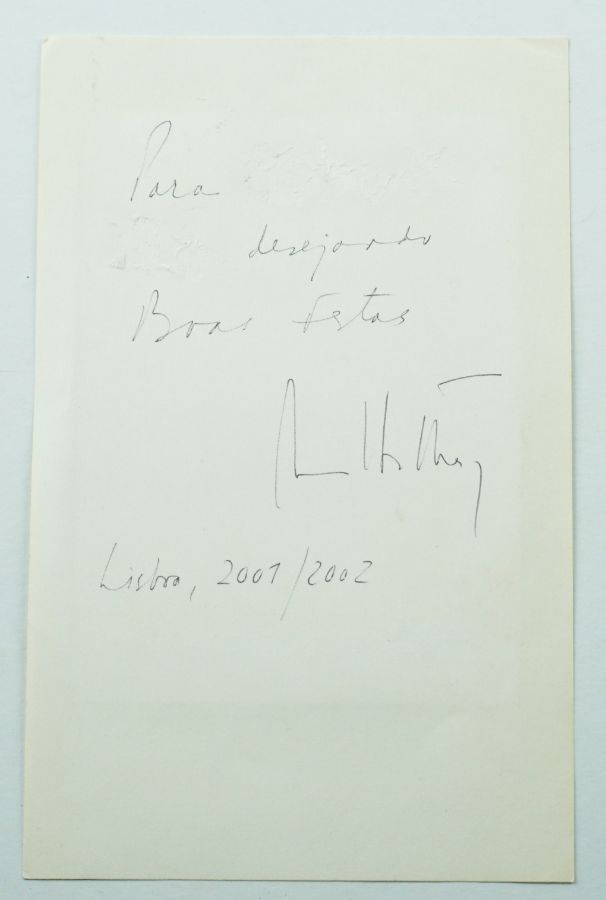 Para
desejando
Boas Festas
Lisboa, 2001/2002